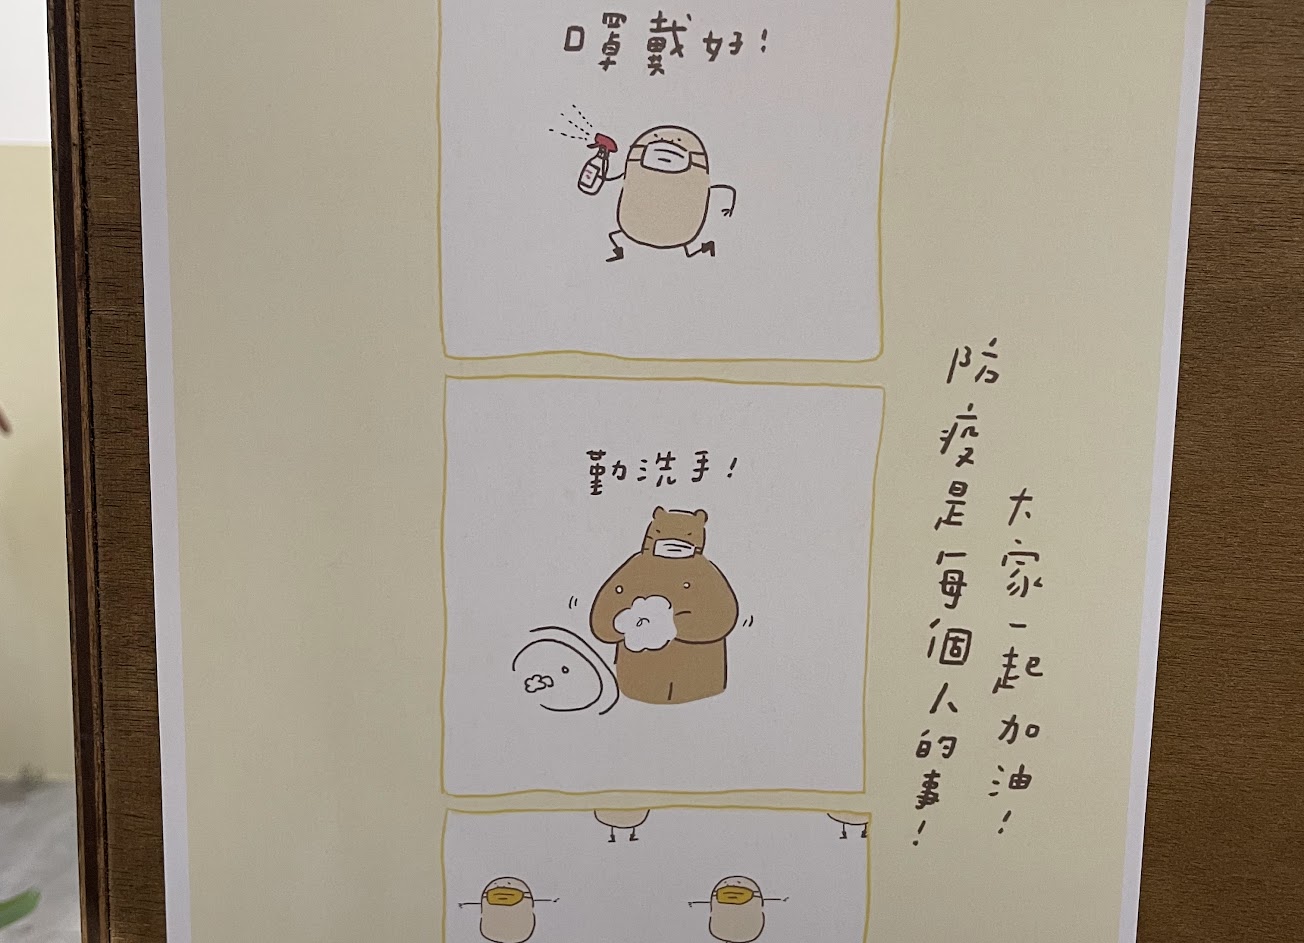 口罩戴好！
勤洗手！
大家一起加油！
防疫是每個人的事！